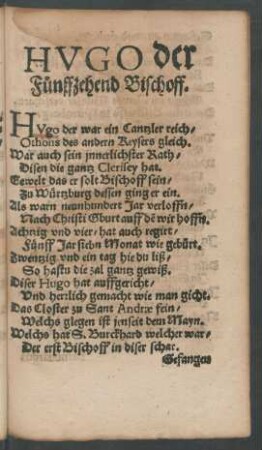 HVGO der
Fünffzehend Bischoff.
HVgo der war ein Cantzler reich/
Othons des andern Keysers gleich.
War auch sein innerlichster Rath/
Disen die gantz Cleriſey hat.
Gewelt das er solt Bischoff sein/
Zu Würtzburg dessen ging er ein.
Als warn neunhundert Jar verloffn/
Nach Christi Gburt auff dē wir hoffn.
Achtzig vnd vier/ hat auch regirt/
Fünff Jar siebn Monat wie gebürt.
Zwentzig vnd ein tag hie du liß/
So hastu die zal gantz gewiß.
Diser Hugo hat auffgericht/
Vnd herrlich gemacht wie man gicht.
Das Closter zu Sant Andræ fein/
Welchs glegen ist jenseit dem Mayn.
Welchs hat S. Burckhard welcher war/
Der erst Bischoff in diser schar.
Gefangen